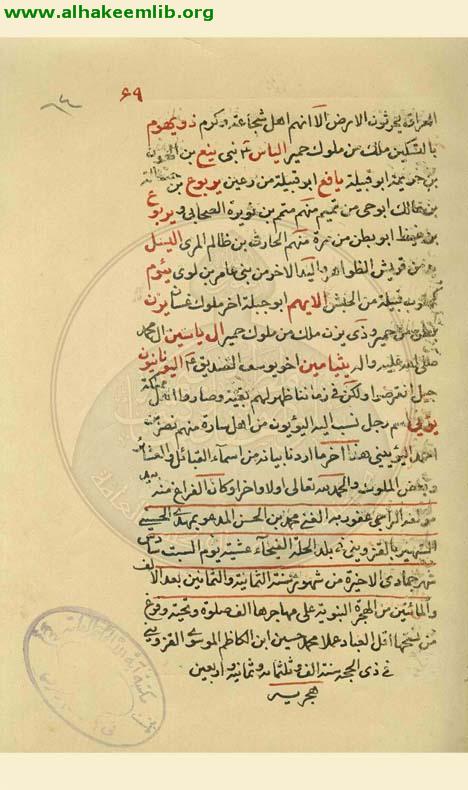 www.alhakeemlib.org
٦٩
يحرثون الارض الا انهم اهل شجاعة وكرم ذويهوم
بالتسكين ملك من ملوك حمير الياس نبي ينع بن الهون
بن خزيمة ابو قبيلة يافع ابو قبيلة من رعين يربوع بن حنظلة
بن مالك ابو حي من تميم منهم متمم بن نويرة الصحابي ويربوع
بن غيظ ابو بطن من مرة منهم الحارث بن ظالم المري اليسل
يد من قريش الظواهر واليد الاخر من بني عامر بن لوي يثوم
قبيلة من الحبش الايهم ابو جبلة اخر ملوك غسان يزن
بطن من حمير وذي يزن ملك من ملوك حمير ال ياسين ال محمد
صلى الله عليه واله بنيامين اخو يوسف الصديق اليونانيون
جيل انقرضوا ولكن في زماننا ظهر لهم بقية وصار
رجل نسب اليه اليؤيون من اهل سارة منهم نصر بن
احمد اليؤييني هذا اخر ما اردنا بيانه من اسماء القبائل والعشائر
وبعض الملوك والحمد لله تعالى اولا واخرا وكان الفراغ منه
مؤلفه الراجي عفو ربه الغني محمد بن الحسن المدعو بمهدي الحسيني
الشهير بالقزويني في بلد الحلة الفيحاء عشية يوم السبت سادس
شهر جمادى الاخيرة من شهور سنة الثمانية والثمانين بعد الالف
والمائتين من الهجرة النبوية على مهاجرها الف صلوة وتحية وفرغ
من نسخها اقل العباد عملا محمد حسين ابن الكاظم الموسوي القزويني
في ذي الحجة سنة الف وثلثمائة وثمانية واربعين
هجرية